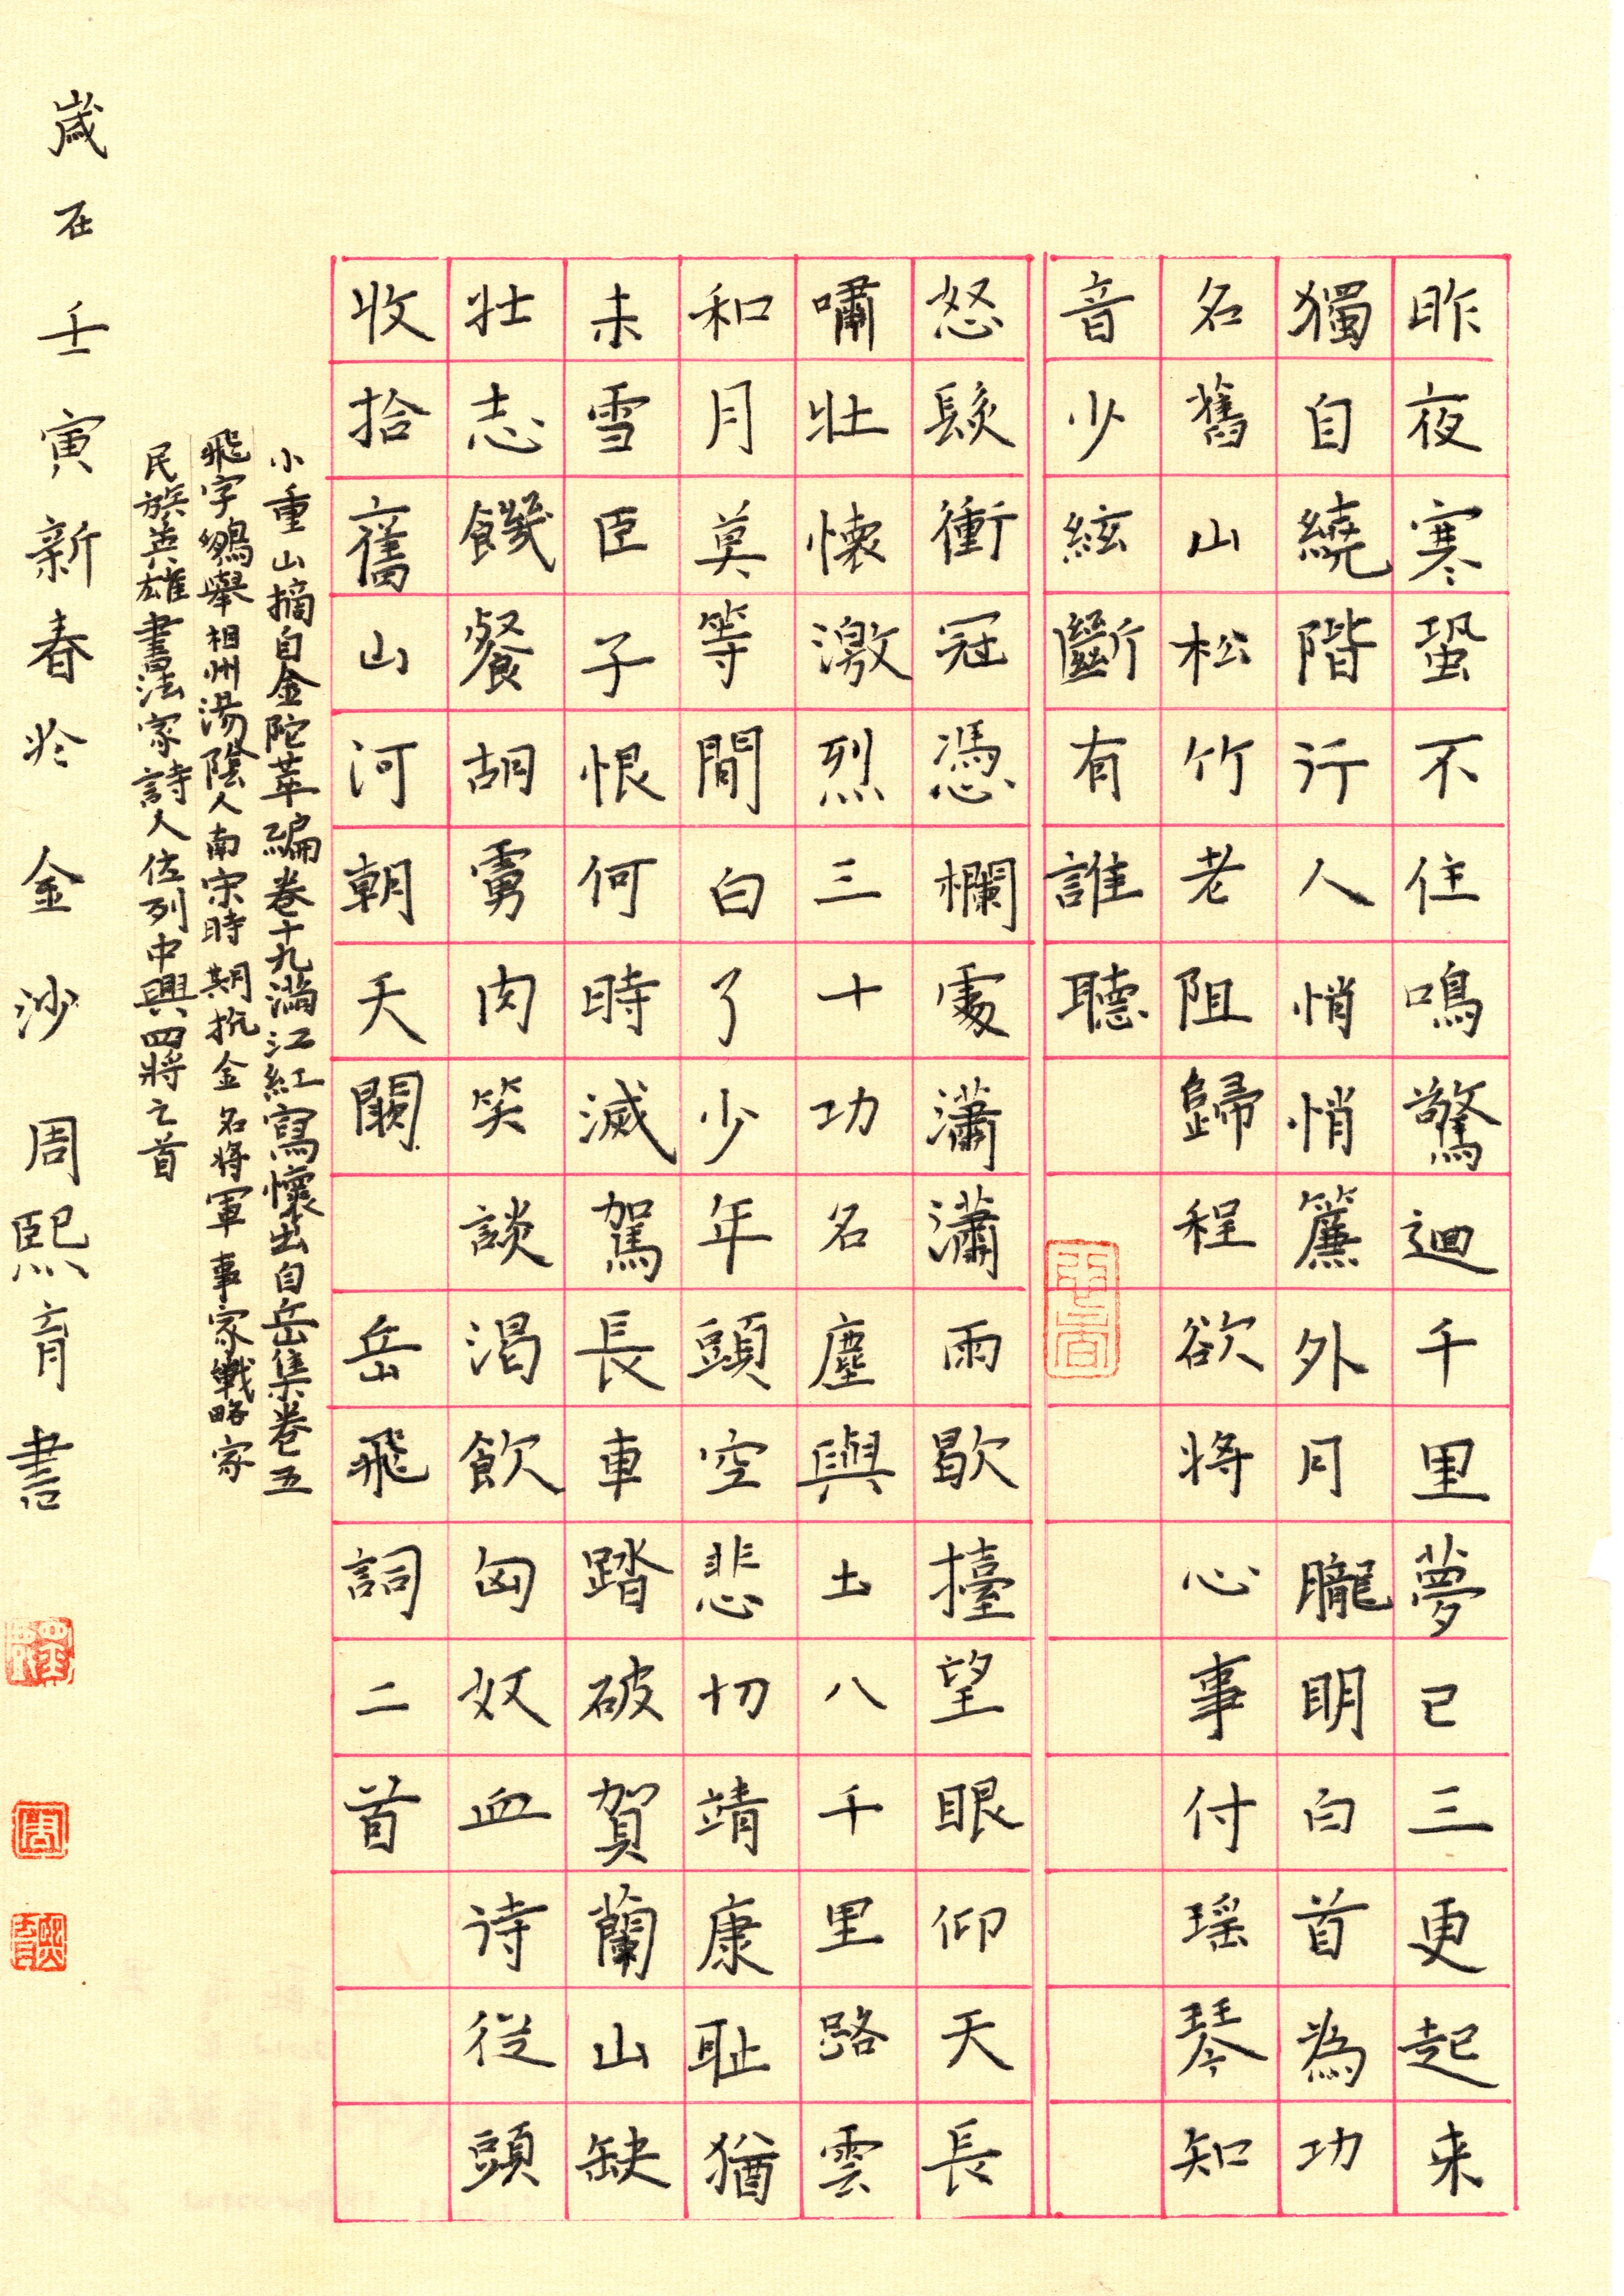 昨夜寒蛩不住鳴驚迴千里夢已三更起来
獨自繞階行人悄悄簾外月朧明白首為功
名舊山松竹老阻歸程欲将心事付瑶琴知
音少絃斷有誰聽
怒髮衝冠憑欄處瀟瀟雨歇擡望眼仰天長
嘯壯懷激烈三十功名塵與土八千里路雲
和月莫等閒白了少年頭空悲切靖康耻猶
未雪臣子恨何時滅駕長車踏破賀蘭山缺
壯志饑餐胡虜肉笑談渴飲匈奴血待從頭
收拾舊山河朝天闕 岳飛詞二首
小重山摘自金陀萃編卷十九滿江紅寫懷出自岳集卷五
飛字鵬舉相州湯陰人南宋時期抗金名將軍事家戰略家
民族英雄書法家詩人位列中興四將之首
歲在壬寅新春於金沙周熙育書